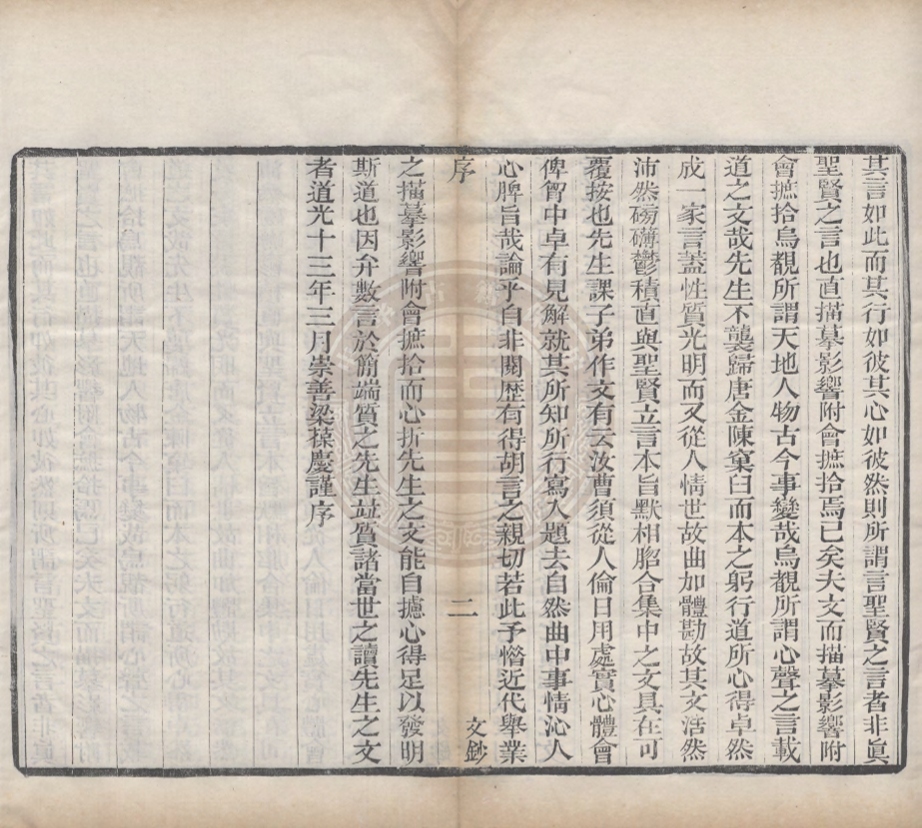 其言如此而其行如彼其心如彼然則所謂言聖賢之言者非眞
聖賢之言也直描摹影響附會摭拾焉已矣夫文而描摹影響附
會摭拾烏覩所謂天地人物古今事變哉烏覩所謂心聲之言載
道之文哉先生不襲歸唐金陳窠臼而本之躬行道所心得卓然
成一家言蓋性質光明而又從人情世故曲加體勘故其文活然
沛然磅礴鬱積直與聖賢立言本旨默相脗合集中之文具在可
覆按也先生課子弟作文有云汝曹須從人倫日用處實心體會
俾胷中卓有見解就其所知所行寫入題去自然曲中事情沁人
心脾旨哉論乎自非閱歷有得胡言之親切若此予懵近代舉業
序 二 文鈔
之描摹影響附會摭拾而心折先生之文能自攄心得足以發明
斯道也因弁數言於簡端質之先生竝質諸當世之讀先生之文
者道光十三年三月崇善梁葆慶謹序